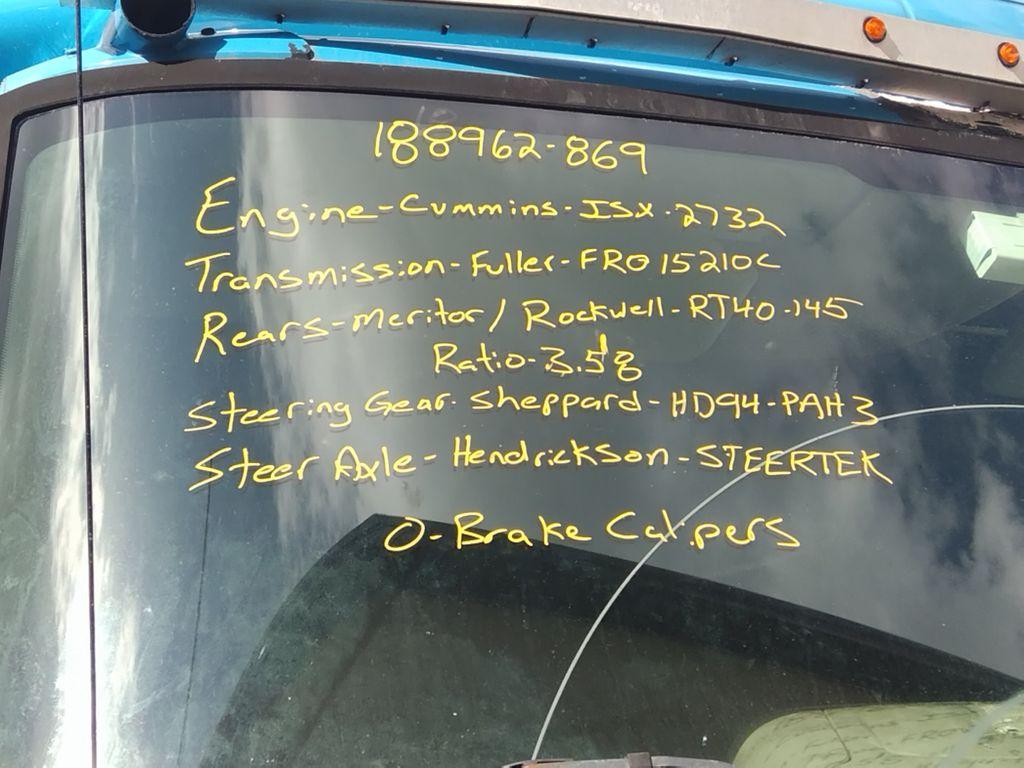 188962-869
Engine-Cummins-ISX-2732
Transmission-Fuller-FRO15210C
Rears-Meritor/Rockwell-RT40-145
Ratio-3.58
Steering Gear-Sheppard-HD94-PAH3
Steer Axle-Hendrickson-STEERTEK
0-Brake Calipers